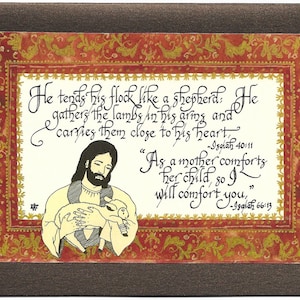 He tends his flock like a shepherd: He
gathers the lambs in his arms and
carries them close to his heart.
-Isaiah 40:11
"As a mother comforts
her child, so I
will comfort you,"
-Isaiah 66:13